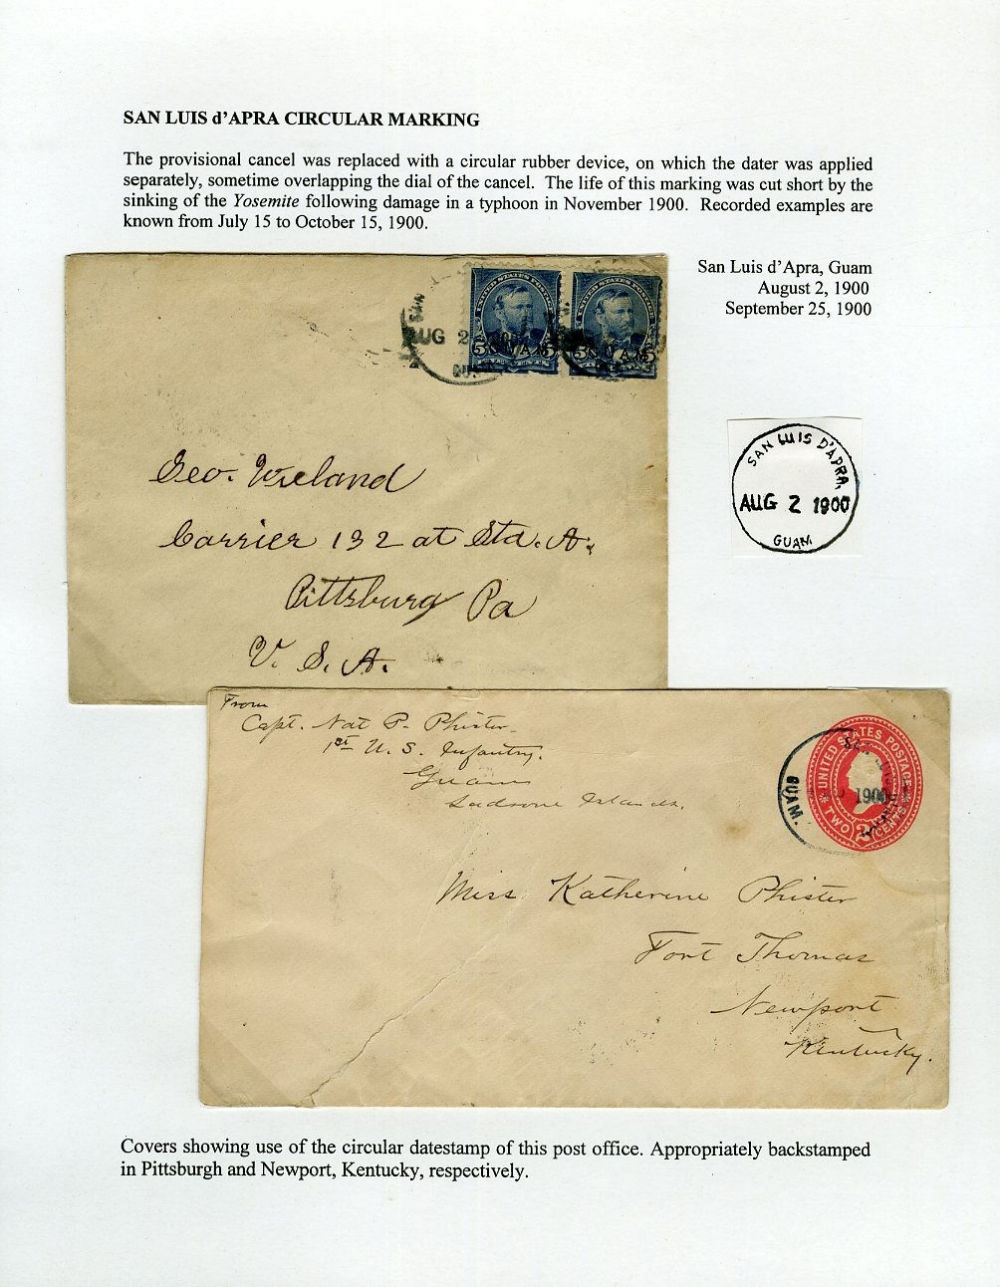 SAN LUIS d'APRA CIRCULAR MARKING
The provisional cancel was replaced with a circular rubber device, on which the dater was applied
separately, sometime overlapping the dial of the cancel. The life of this marking was cut short by the
sinking of the Yosemite following damage in a typhoon in November 1900. Recorded examples are
known from July 15 to October 15, 1900.
San Luis d'Apra, Guam
August 2, 1900
September 25, 1900
SAN
AUG 2
GUAM
UNITED STATES POSTAGE
5 GUAM 5
5 GUAM 5
Geo. Vreeland
Carrier 132 at Sta. A.
Pittsburg Pa
U. S. A.
SAN LUIS D'APRA,
AUG 2 1900
GUAM
From
Capt. Nat P. Phister
1st U. S. Infantry.
Guam
Ladrone Islands.
UNITED STATES POSTAGE
1900
GUAM.
TWO 2 CENTS
Miss Katherine Phister
Fort Thomas
Newport
Kentucky.
Covers showing use of the circular datestamp of this post office. Appropriately backstamped
in Pittsburgh and Newport, Kentucky, respectively.